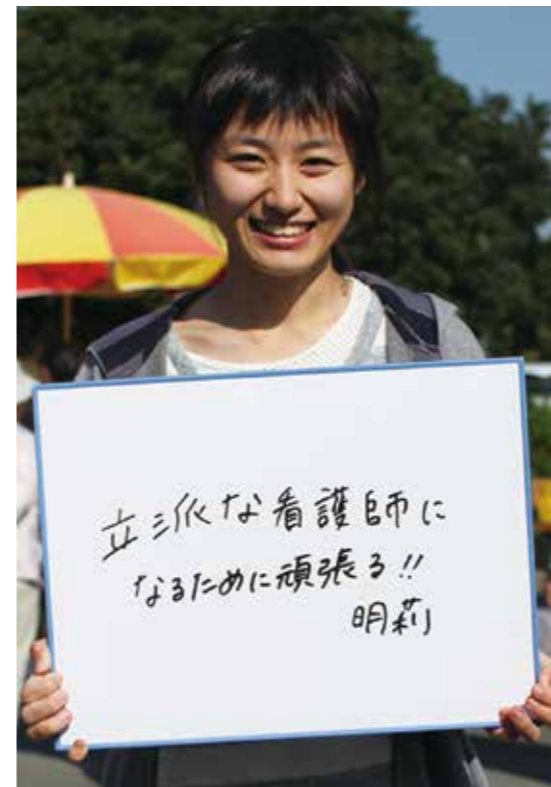 立派な看護師に
なるために頑張る!!
明莉